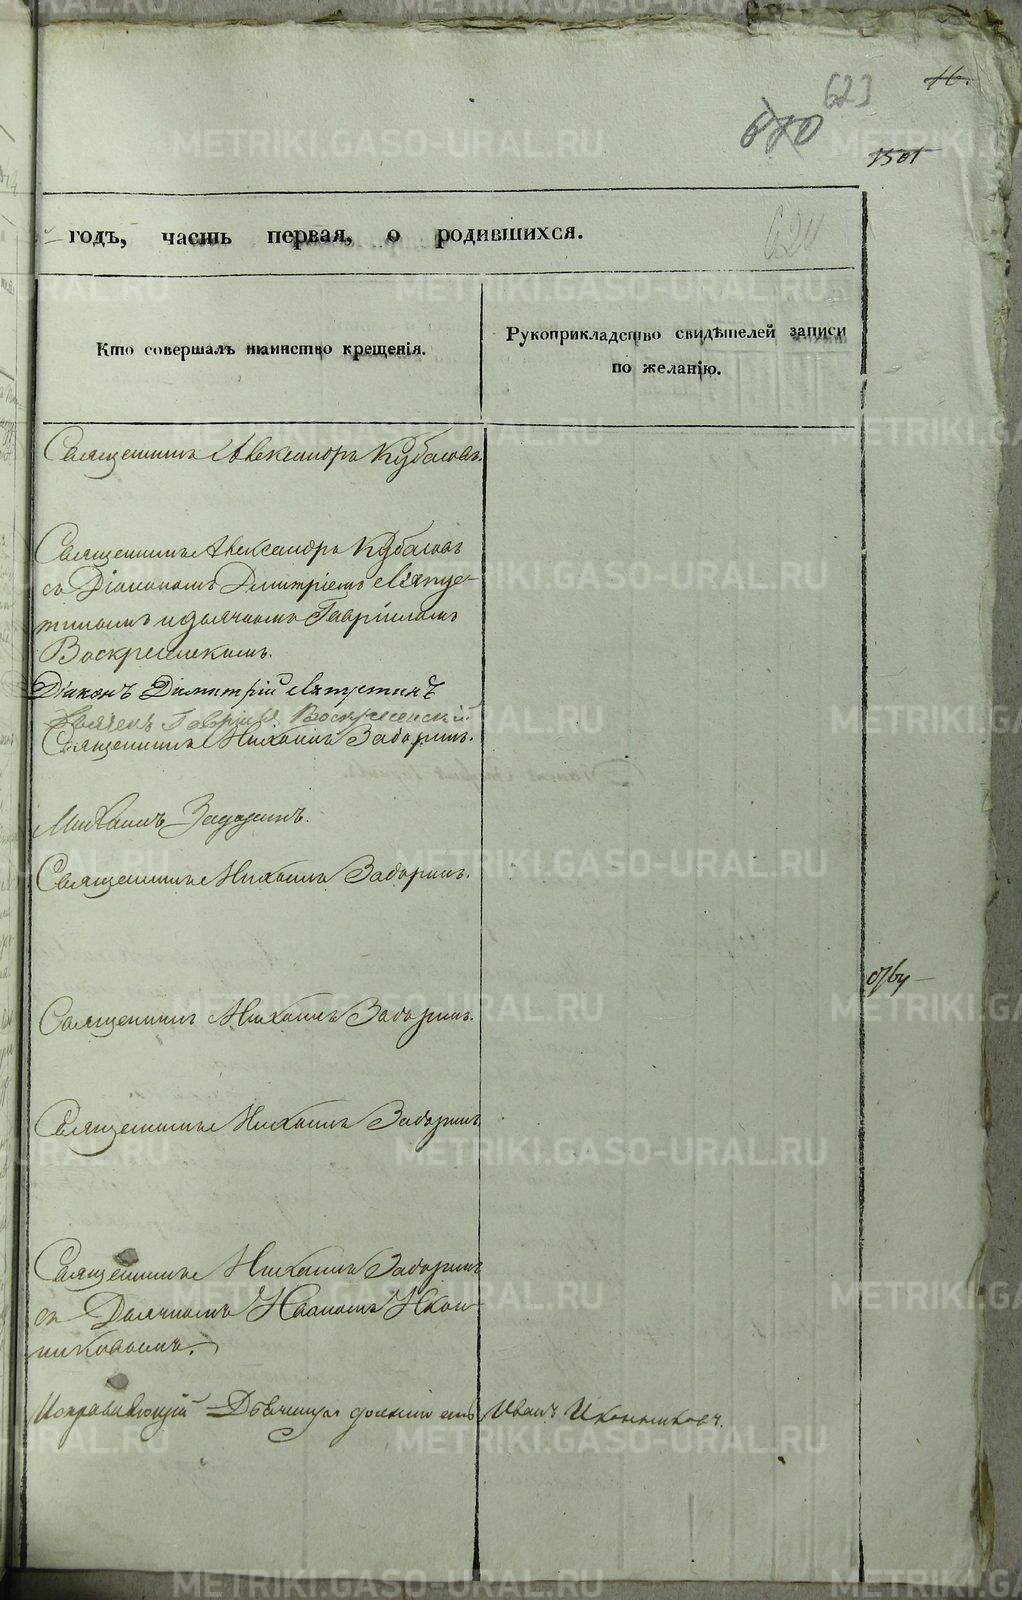 16.
623
670
1501
годъ, часть первая, о родившихся.
624
Кто совершалъ таинство крещенія.
Рукоприкладство свидѣтелей записи
по желанію.
Священникъ Александръ Кубасовъ.
Священникъ Александръ Кубасовъ
съ Діакономъ Дмитріемъ Ляпус-
тинымъ и дьячкомъ Гавріиломъ
Воскресенскимъ.
Діаконъ Димитрій Ляпустинъ
Дьячекъ Гавріилъ Воскресенскій
Священникъ Михаилъ Задоринъ.
Михаилъ Задоринъ.
Священникъ Михаилъ Задоринъ.
Священникъ Михаилъ Задоринъ.
Священникъ Михаилъ Задоринъ.
Священникъ Михаилъ Задоринъ
съ Дьячкомъ Иваномъ Икон-
никовымъ.
Исправляющій Дьяческую должность Иванъ Иконниковъ.
METRIKI.GASO-URAL.RU